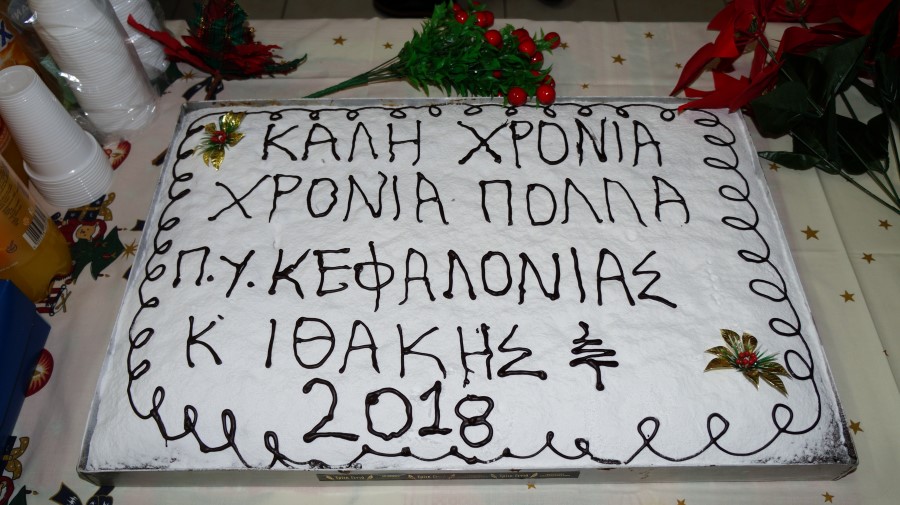 ΚΑΛΗ ΧΡΟΝΙΑ
ΧΡΟΝΙΑ ΠΟΛΛΑ
Π.Υ. ΚΕΦΑΛΟΝΙΑΣ
Κ' ΙΘΑΚΗΣ
2018